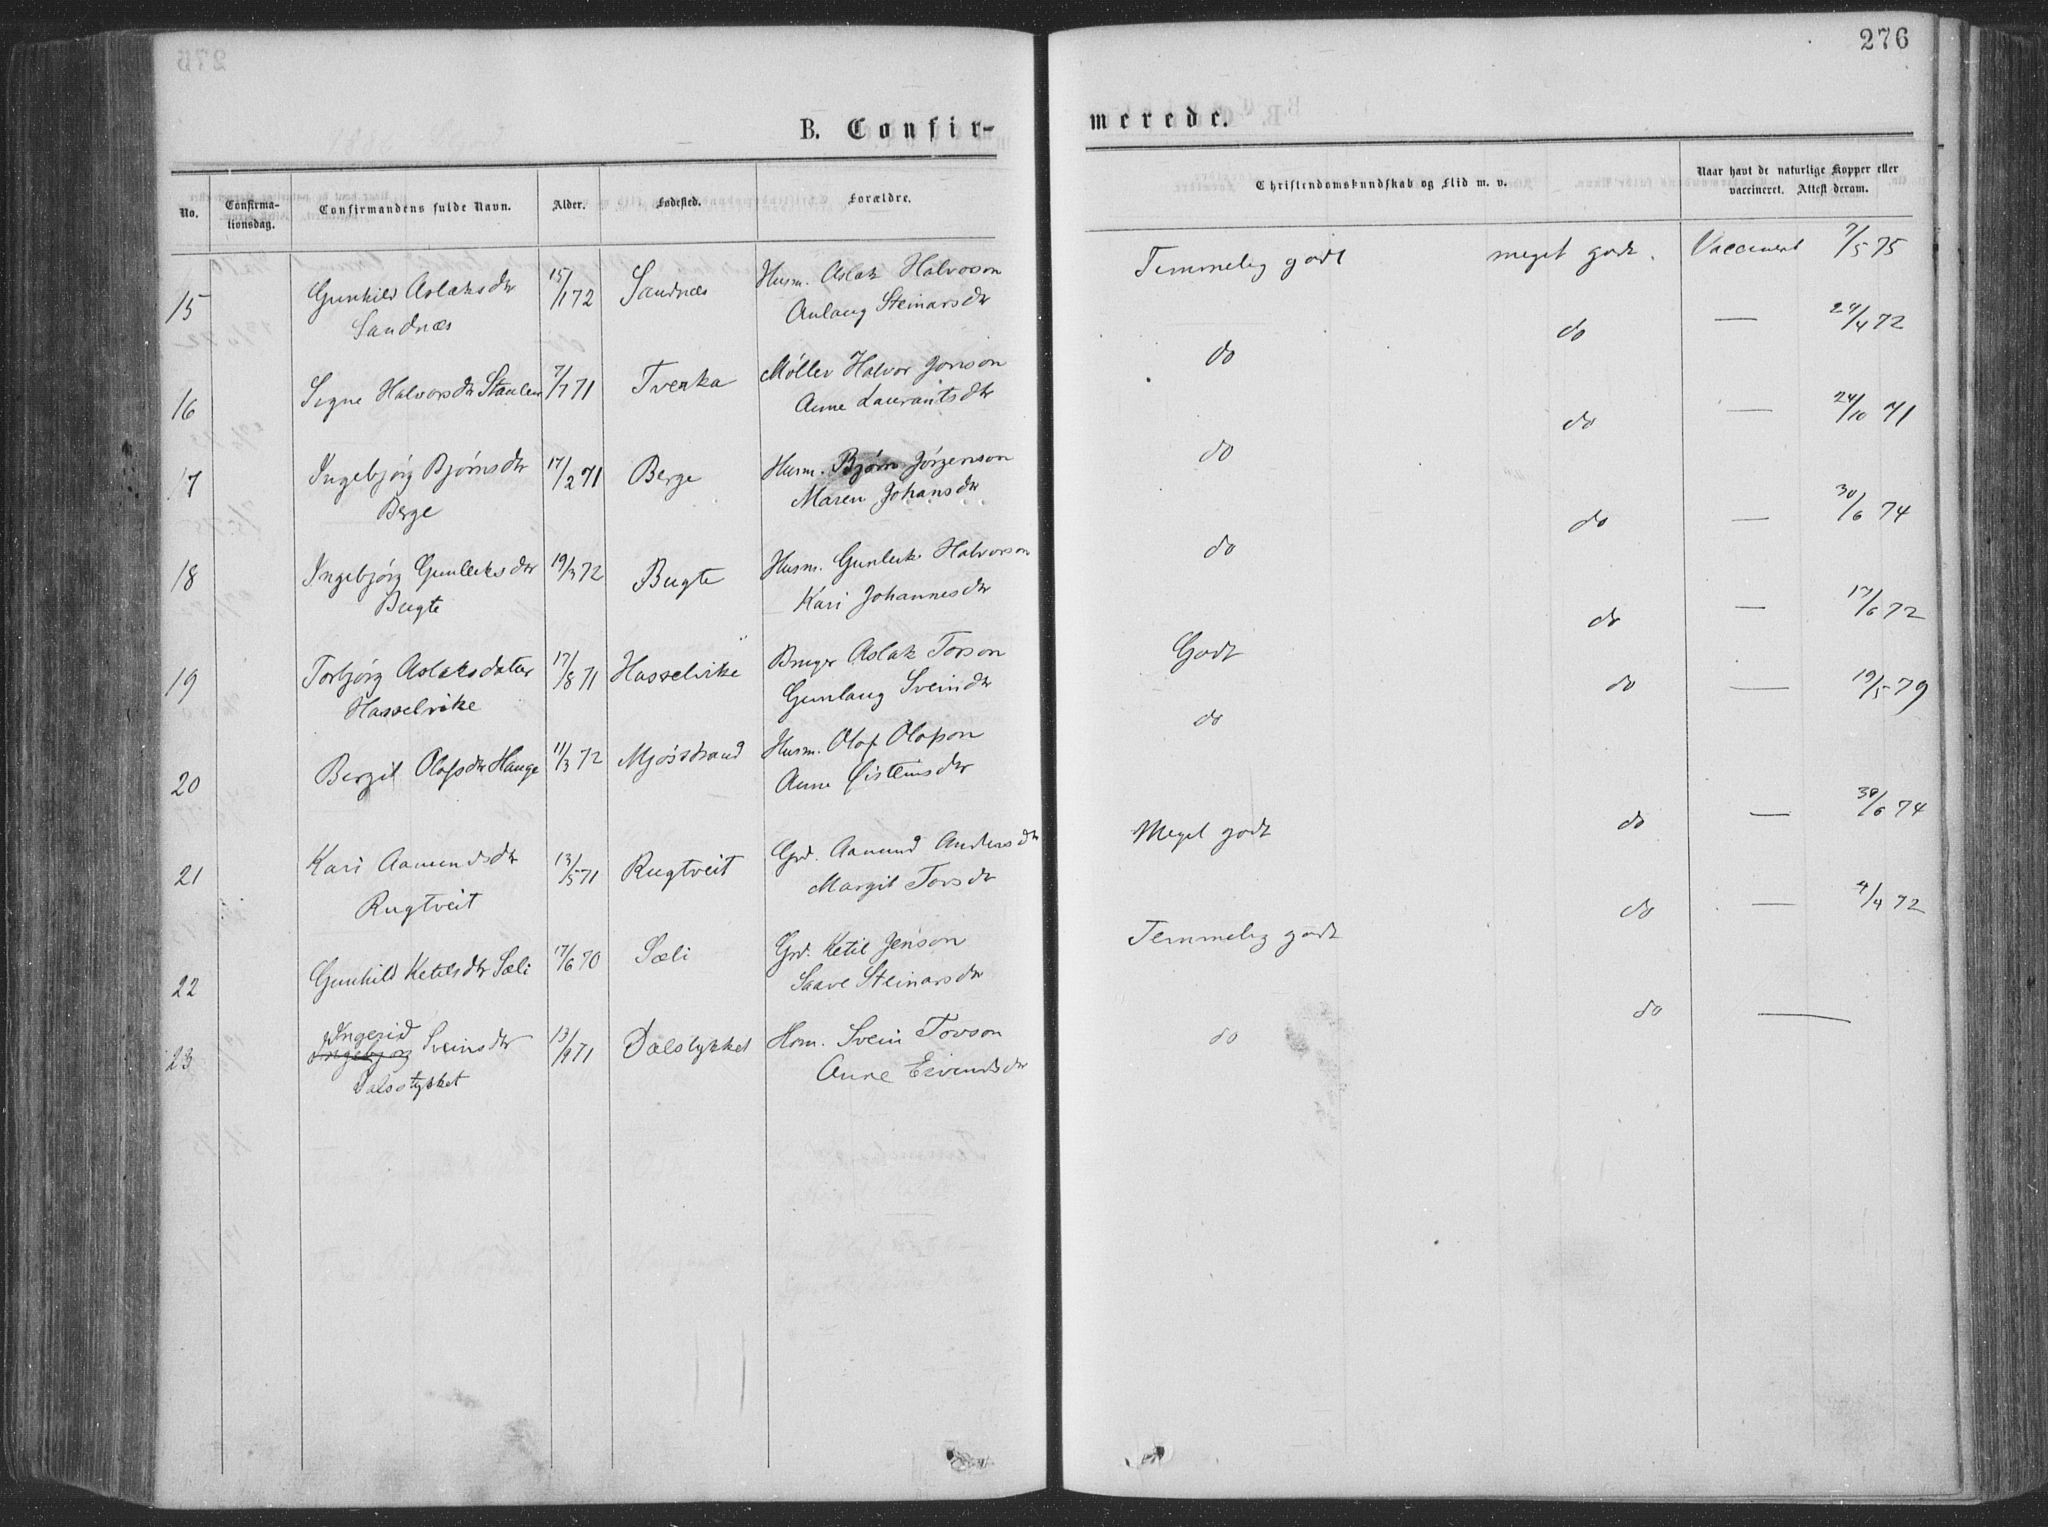 276
B. Confir-
merede.
No.
Confirma-
tionsdag.
Confirmandens fulde Navn.
Alder.
Fødested.
Forældre.
Christendomskundskab og Flid m. v.
Naar havt de naturlige Kopper eller
vaccineret. Attest derom.
15 Gunhild Aslaksdtr 15/1 72 Sandnæs Husm. Aslak Halvorson Temmelig godt meget godt. Vaccineret 7/5 75
Sandnæs Anlaug Steinarsdtr
16 Signe Halvorsdtr 7/7 71 Møller Halvor Jonson do do — 24/4 72
Anne Laurantsdtr
17 Ingebjørg Bjørnsdtr 17/2 71 Berge Husm. Bjørn Jørgenson do do — 24/10 71
Berge Maren Johansdtr
18 Ingebjørg Gunleiksdtr 19/3 72 Bugte Husm. Gunleik Halvorson do do — 30/6 74
Bugte Kari Johannesdtr
19 Torbjørg Aslaksdatter 17/8 71 Hasselvike Bruger Aslak Torson Godt do — 17/6 72
Hasselvike Gunlaug Sveindtr
20 Bergit Olafsdtr Hauge 11/3 72 Mjøsstrand Husm. Olaf Olafson do do — 19/5 79
Anne Øisteinsdtr
21 Kari Aamundsdtr 13/5 71 Rugtveit Grd. Aamund Andersdtr Meget godt do — 30/6 74
Rugtveit Margit Torsdtr
22 Gunhild Ketilsdtr Sæli 17/6 70 Sæli Grd. Ketil Jenson Temmelig godt do — 4/4 72
Saave Steinarsdtr
Ingerid
23 Ingebjørg Sveinsdtr 13/9 71 Dalstykket Hsm. Svein Torson do do —
Dalsstykket Anne Eivindsdtr